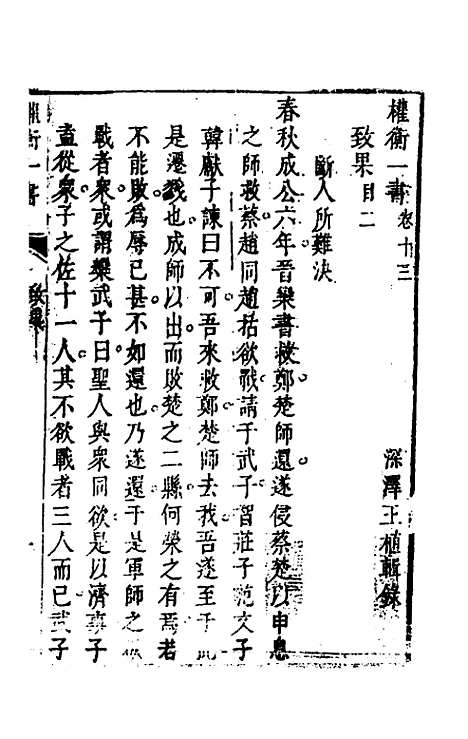 權衡一書卷十三
深澤王植輯錄
致果目二
斷人所難決
春秋成公六年晉欒書救鄭楚師還遂侵蔡楚以申息
之師救蔡趙同趙括欲戰請于武子智莊子范文子
韓獻子諫曰不可吾來救鄭楚師去我吾遂至于此
是遷戮也成師以出而敗楚之二縣何榮之有焉若
不能敗為辱已甚不如還也乃遂還于是軍師之
戰者衆或謂欒武子曰聖人與衆同欲是以濟事子
盍從衆子之佐十一人其不欲戰者三人而已武子
權衡一書
致果